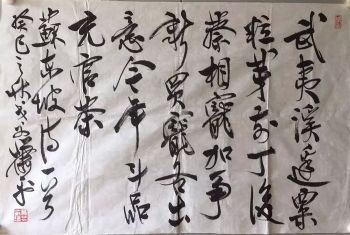 武夷溪邊粟
粒芽前丁後
蔡相寵加爭
新買寵各出
意今年斗品
充官茶
蘇東坡詩一首
癸巳之秋